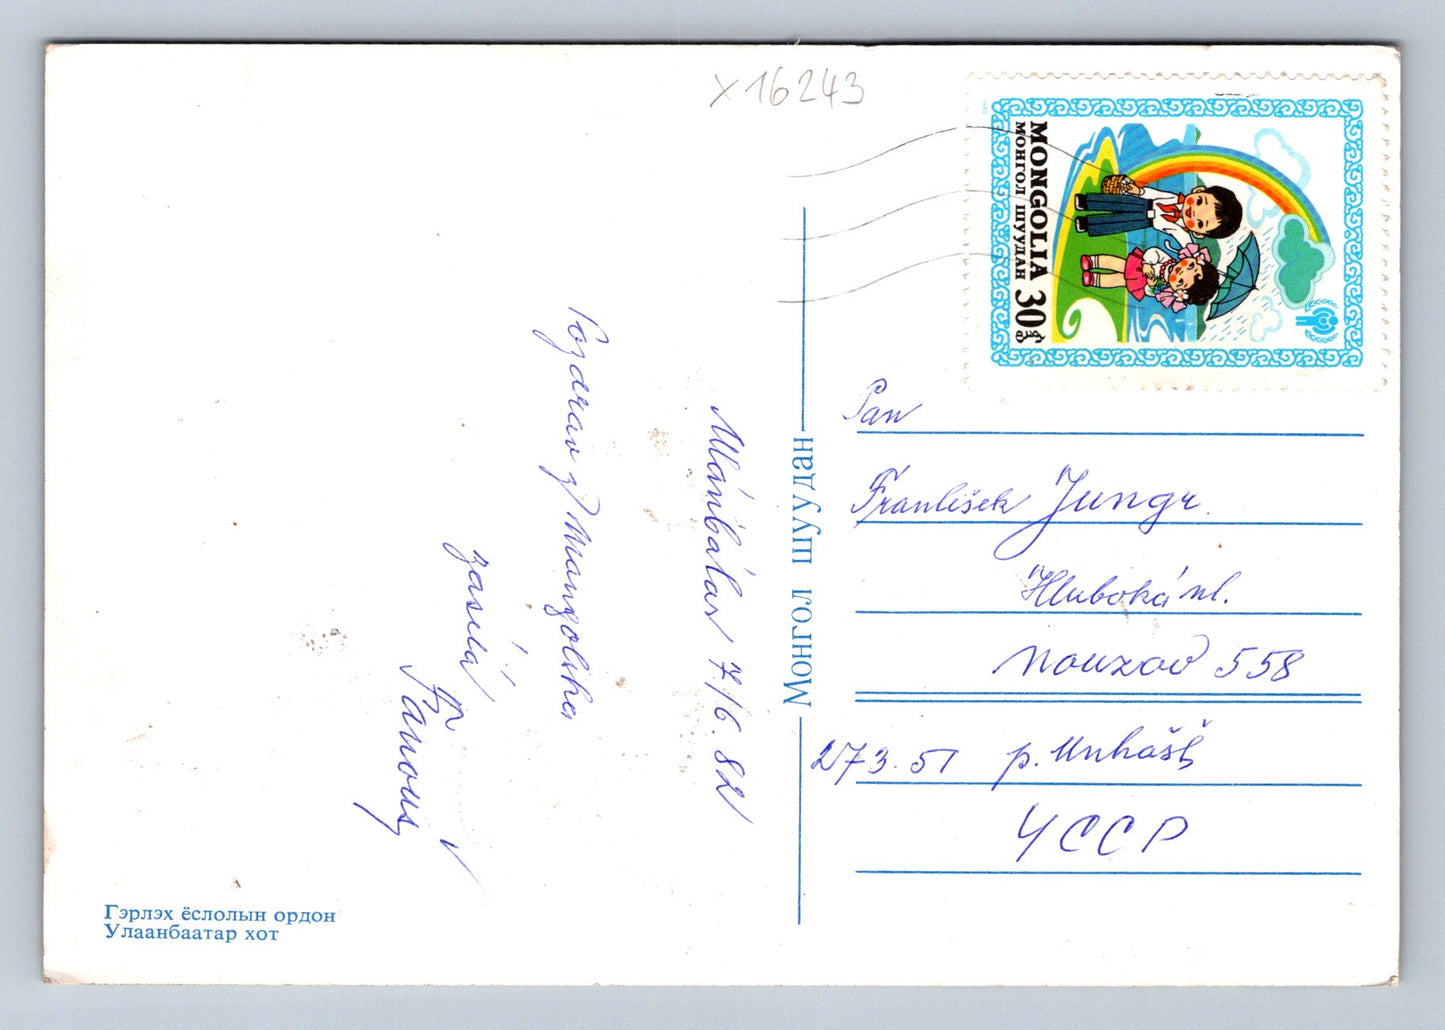 X16243
MONGOLIA 30
МОНГОЛ ШУУДАН
Ulánbátar 7/6. 82
Pozdrav z Mongolska
zasílá
Fr. Janouš
Монгол шуудан
Pan
František Jungr
Hluboká ul.
Nouzov 558
273 51 p. Unhošť
ЧССР
Гэрлэх ёслолын ордон
Улаанбаатар хот